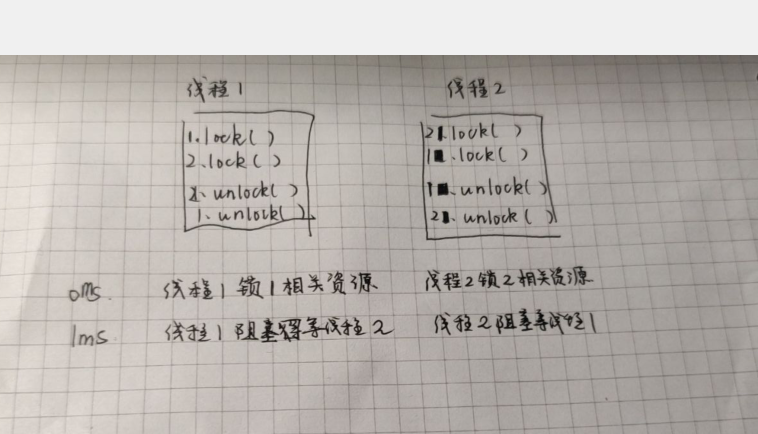 线程1
1.lock( )
2.lock( )
2. unlock( )
1. unlock( )
线程2
2.lock( )
1.lock( )
1.unlock( )
2. unlock( )
0ms. 线程1锁1相关资源 线程2锁2相关资源
1ms 线程1阻塞等线程2 线程2阻塞等线程1